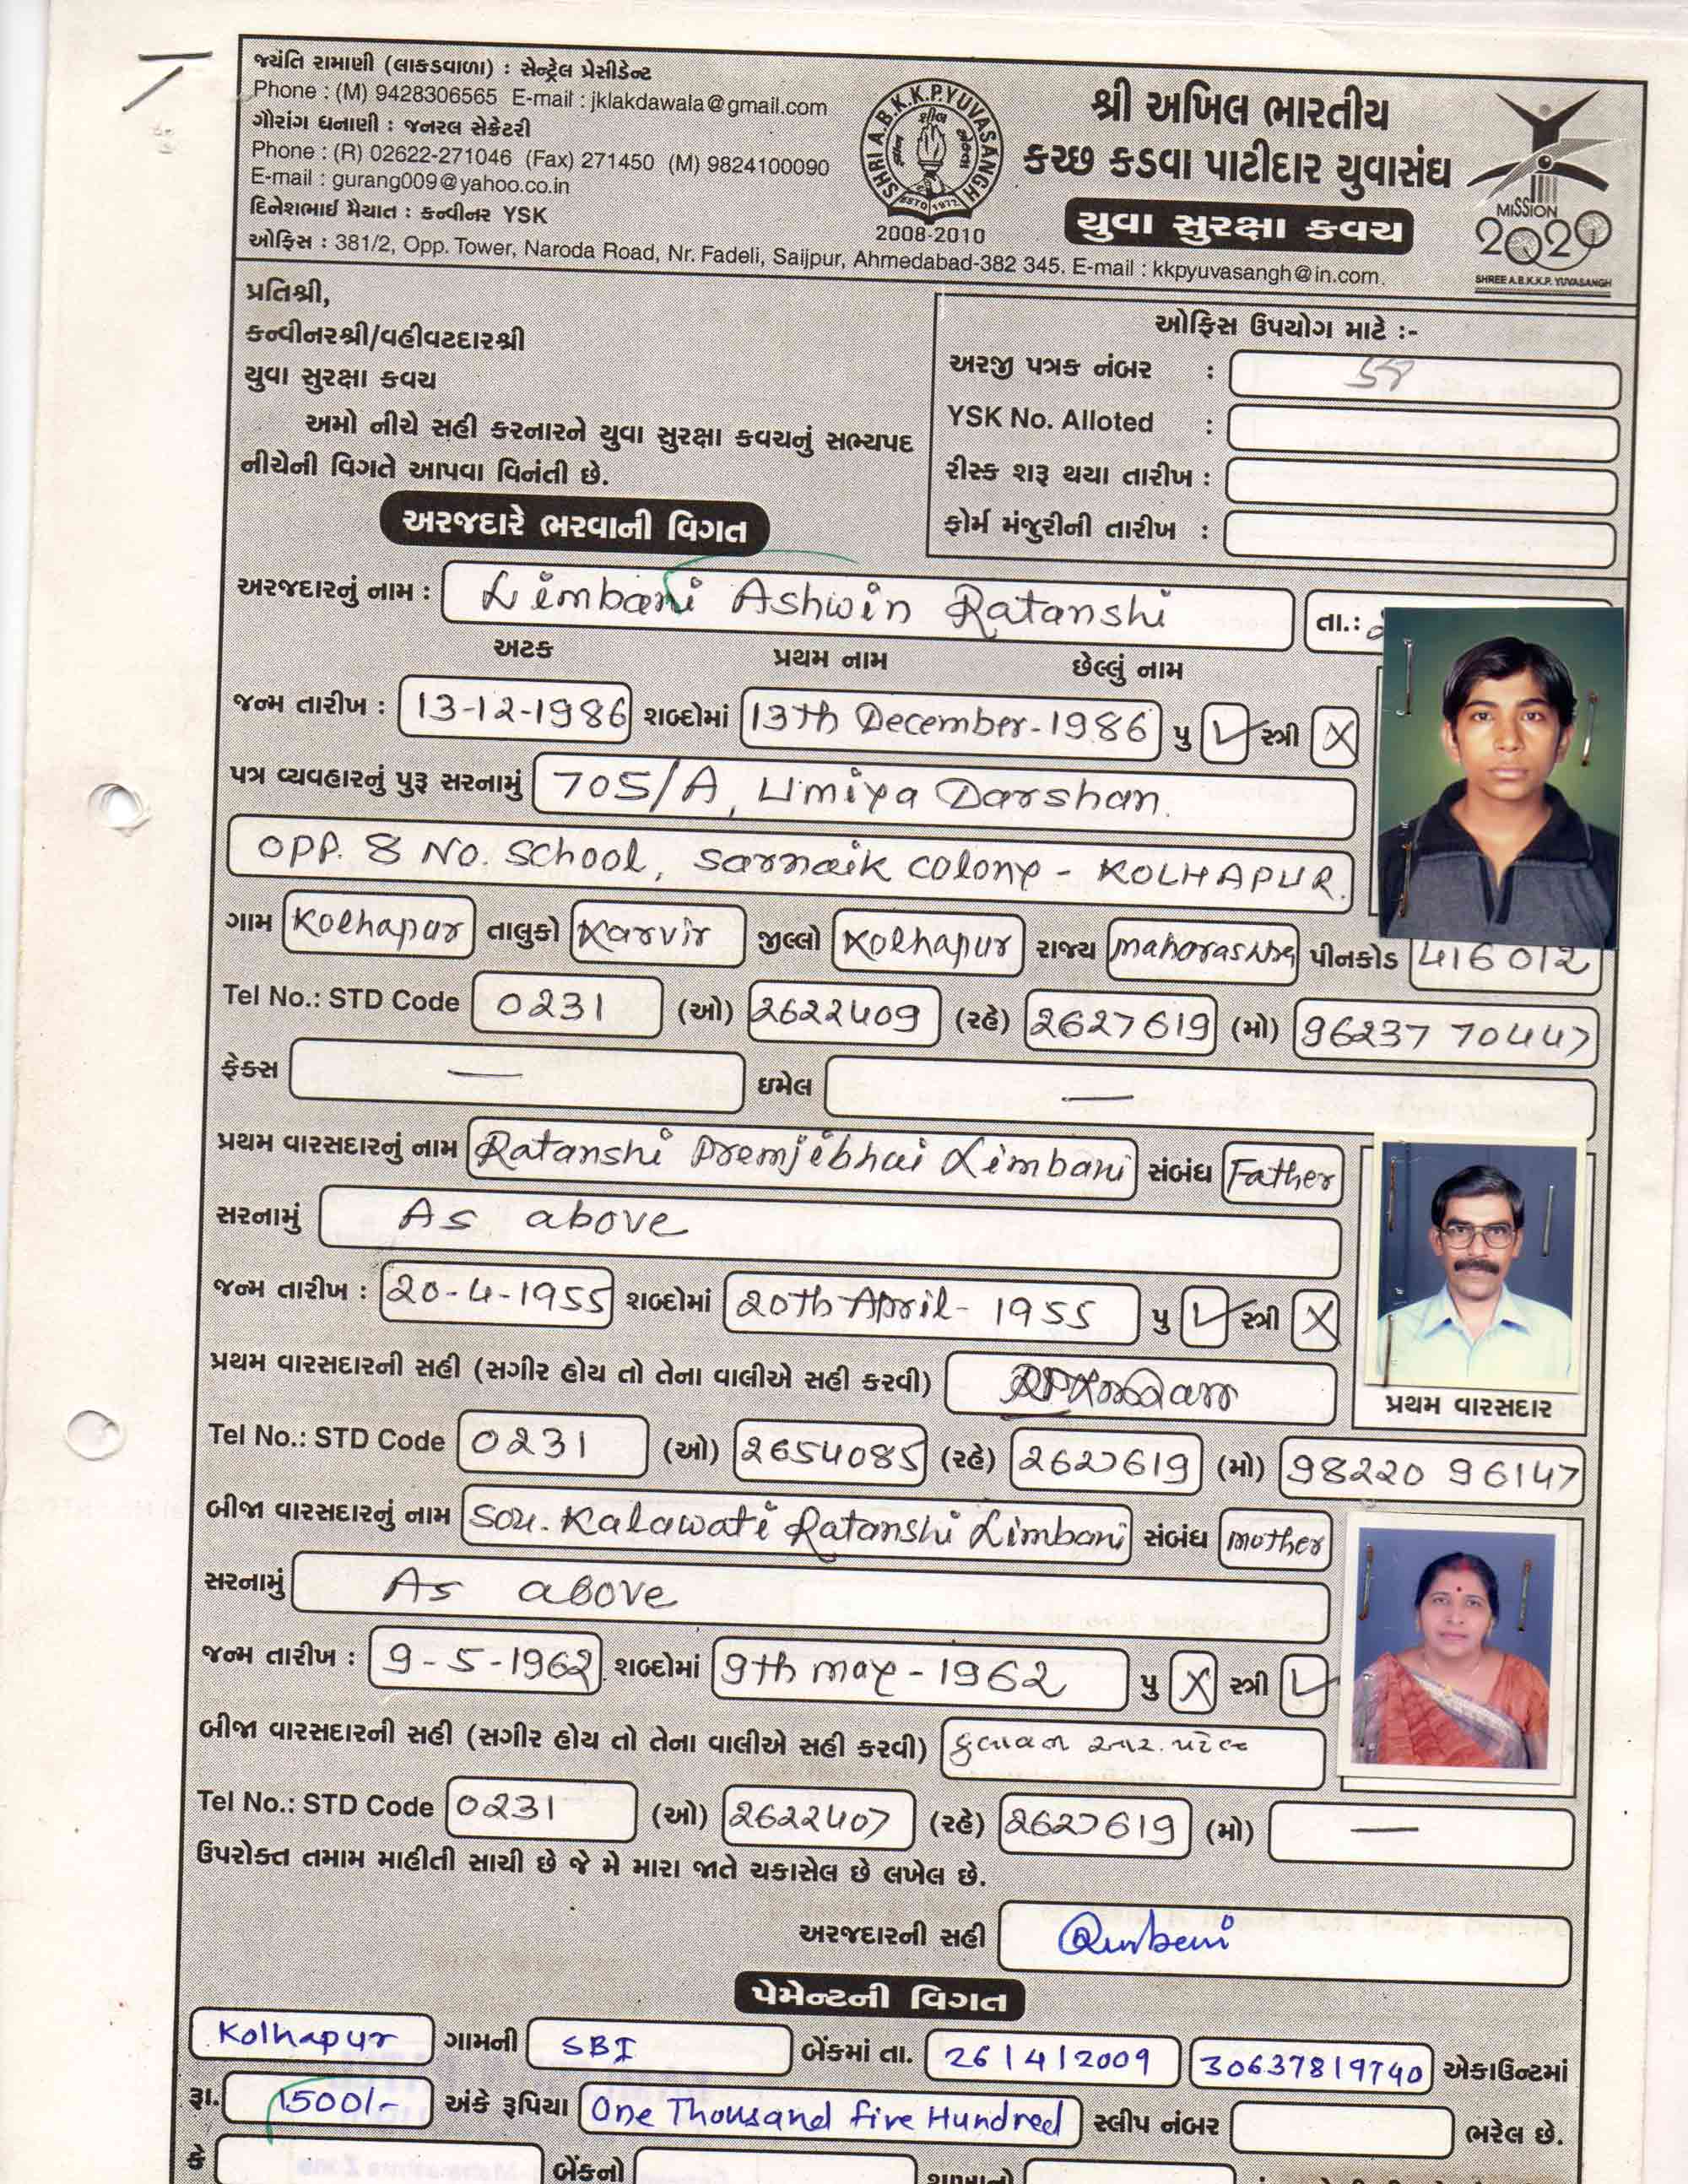 જયંતિ રામાણી (લાકડાવાળા) : સેન્ટ્રેલ પ્રેસીડેન્ટ
Phone : (M) 9428306565 E-mail : jklakdawala@gmail.com
ગૌરાંગ ધનાણી : જનરલ સેક્રેટરી
Phone : (R) 02622-271046 (Fax) 271450 (M) 9824100090
E-mail : gurang009@yahoo.co.in
દિનેશભાઈ મૈયાત : કન્વીનર YSK
ઓફિસ : 381/2, Opp. Tower, Naroda Road, Nr. Fadeli, Saijpur, Ahmedabad-382 345. E-mail : kkpyuvasangh@in.com.
SHRI A.B.K.K.P.YUVASANGH
ESTD 1972
2008-2010
શ્રી અખિલ ભારતીય
કચ્છ કડવા પાટીદાર યુવાસંઘ
યુવા સુરક્ષા કવચ
MISSION
2020
SHREE A.B.K.K.P. YUVASANGH
પ્રતિશ્રી,
કન્વીનરશ્રી/વહીવટદારશ્રી
યુવા સુરક્ષા કવચ
અમો નીચે સહી કરનારને યુવા સુરક્ષા કવચનું સભ્યપદ
નીચેની વિગતે આપવા વિનંતી છે.
ઓફિસ ઉપયોગ માટે :-
અરજી પત્રક નંબર :
YSK No. Alloted :
રીસ્ક શરૂ થયા તારીખ :
ફોર્મ મંજુરીની તારીખ :
અરજદારે ભરવાની વિગત
અરજદારનું નામ : Limbani Ashwin Ratanshi તા.:
અટક પ્રથમ નામ છેલ્લું નામ
જન્મ તારીખ : 13-12-1986 શબ્દોમાં 13th December-1986 પુ ✓ સ્ત્રી X
પત્ર વ્યવહારનું પુરૂ સરનામું 705/A, Umiya Darshan.
OPP. 8 NO. School, Sarnaik Colony - KOLHAPUR.
ગામ Kolhapur તાલુકો Karvir જીલ્લો Kolhapur રાજ્ય Maharashtra પીનકોડ 416012
Tel No.: STD Code 0231 (ઓ) 2622409 (રહે) 2627619 (મો) 96237 70447
ફેક્સ — ઇમેલ —
પ્રથમ વારસદારનું નામ Ratanshi Premjibhai Limbani સંબંધ Father
સરનામું As above
જન્મ તારીખ : 20-4-1955 શબ્દોમાં 20th April- 1955 પુ ✓ સ્ત્રી X
પ્રથમ વારસદારની સહી (સગીર હોય તો તેના વાલીએ સહી કરવી)
પ્રથમ વારસદાર
Tel No.: STD Code 0231 (ઓ) 2654085 (રહે) 2627619 (મો) 98220 96147
બીજા વારસદારનું નામ Sou. Kalawati Ratanshi Limbani સંબંધ Mother
સરનામું As above
જન્મ તારીખ : 9-5-1962 શબ્દોમાં 9th May-1962 પુ X સ્ત્રી ✓
બીજા વારસદારની સહી (સગીર હોય તો તેના વાલીએ સહી કરવી) આર. પટેલ
Tel No.: STD Code 0231 (ઓ) 2622407 (રહે) 2627619 (મો) —
ઉપરોક્ત તમામ માહીતી સાચી છે જે મે મારા જાતે ચકાસેલ છે લખેલ છે.
અરજદારની સહી
પેમેન્ટની વિગત
Kolhapur ગામની SBI બેંકમાં તા. 26/4/2009 30637819740 એકાઉન્ટમાં
રૂા. 1500/- અંકે રૂપિયા One Thousand five Hundred સ્લીપ નંબર ભરેલ છે.
કે બેંકનો